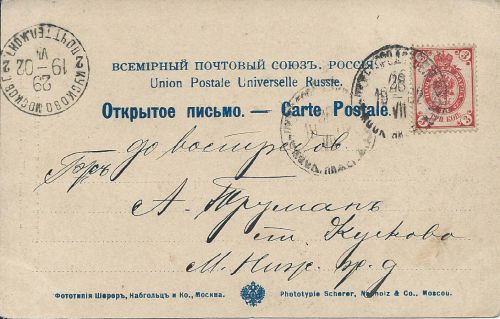 ВСЕМІРНЫЙ ПОЧТОВЫЙ СОЮЗЪ. РОССІЯ.
Union Postale Universelle Russie.
Открытое письмо. — Carte Postale.
КУСКОВО МОСКОВ.
2 ПОЧТ. ТЕЛ. КОНТ. 2
29
VI
19-02
28
VII
3
КОП.
до востребов
А. Труманъ
ст. Кусково
М. Ниж. ж. д
Фототипія Шереръ, Набгольцъ и Ко., Москва.
Phototypie Scherer, Nabholz & Co., Moscou.